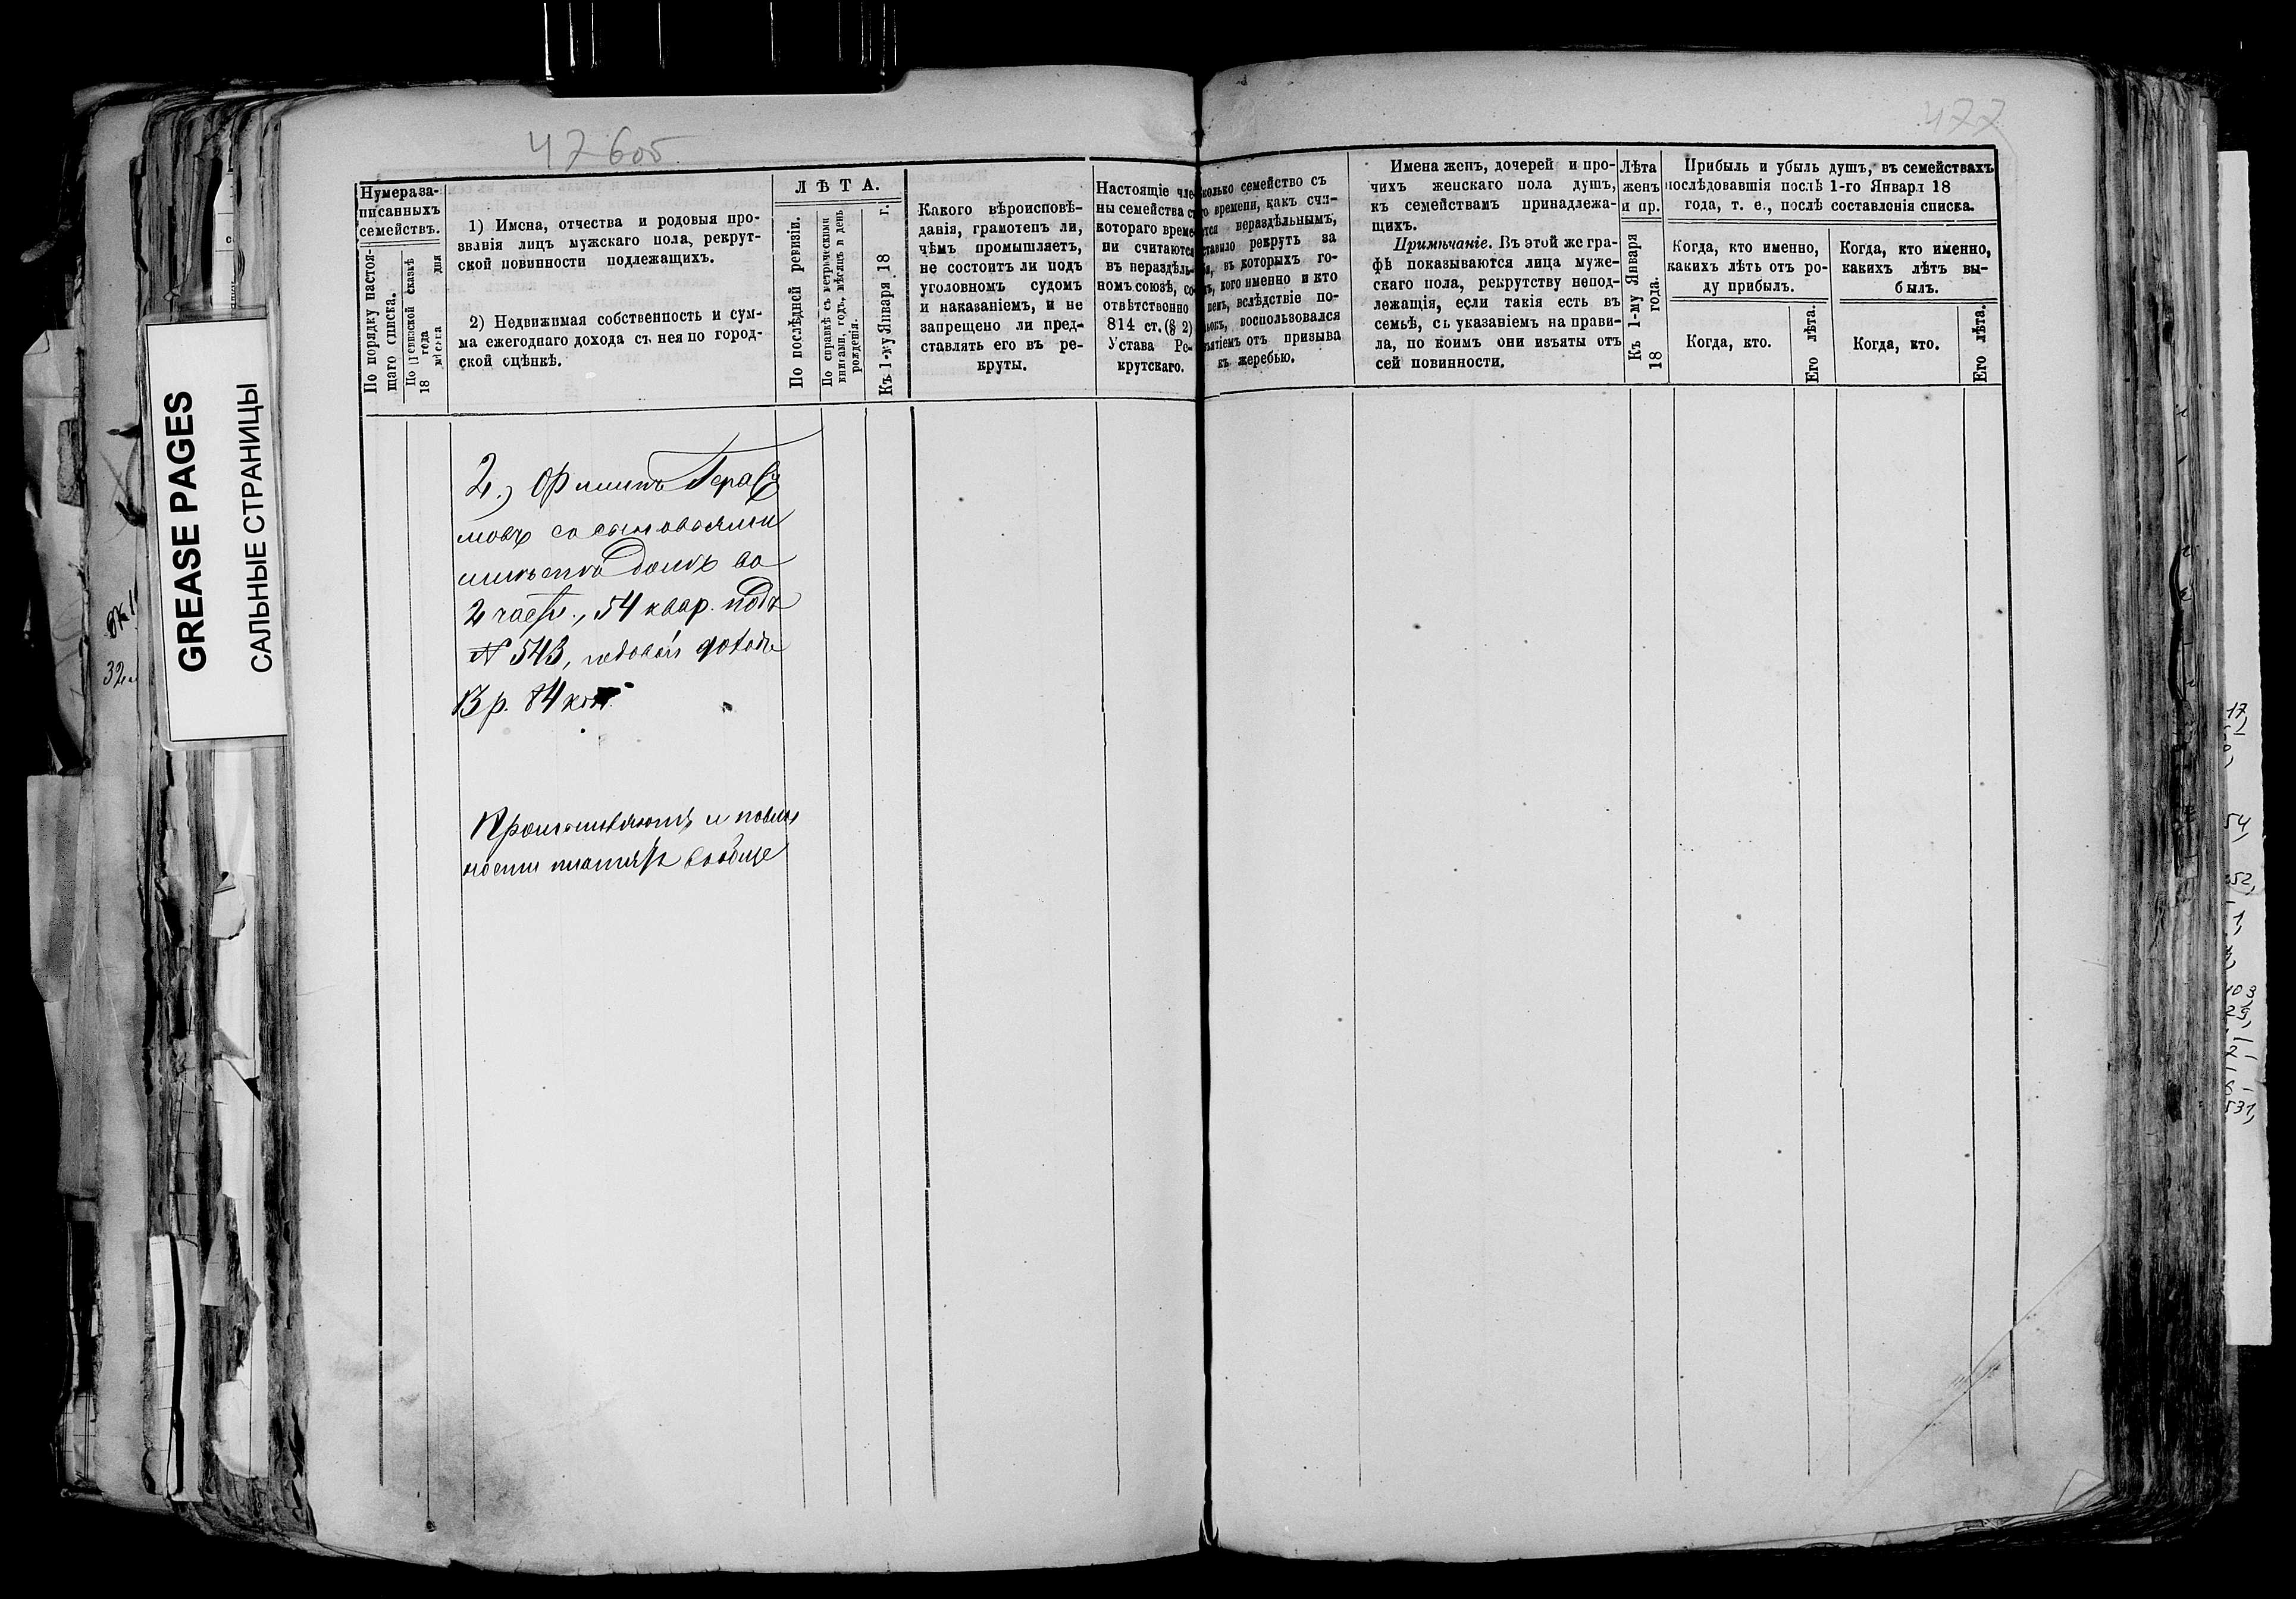 476об
477
GREASE PAGES
САЛЬНЫЕ СТРАНИЦЫ
Нумера за-
писанныхъ
семействъ.
По порядку настоя-
щаго списка.
По ревизской сказкѣ
18 года
мѣсяца дня
1) Имена, отчества и родовыя про-
званія лицъ мужскаго пола, рекрут-
ской повинности подлежащихъ.
2) Недвижимая собственность и сум-
ма ежегоднаго дохода съ нея по город-
ской оцѣнкѣ.
ЛѢТА.
По послѣдней ревизіи.
По справкѣ съ метрическими
книгами, годъ, мѣсяцъ и день
рожденія.
Къ 1-му Января 18 г.
Какого вѣроисповѣ-
данія, грамотенъ ли,
чѣмъ промышляетъ,
не состоитъ ли подъ
уголовномъ судомъ
и наказаніемъ, и не
запрещено ли пред-
ставлять его въ ре-
круты.
Настоящіе чле-
ны семейства съ
котораго време-
ни считаются
въ нераздѣль-
номъ союзѣ, со-
отвѣтственно
814 ст. (§ 2)
Устава Ре-
крутскаго.
колько семейство съ
го времени, какъ счи-
ется нераздѣльнымъ,
ставило рекрутъ за
я, въ которыхъ го-
ъ, кого именно и кто
пенъ, вслѣдствіе по-
ьокъ, воспользовался
зъятіемъ отъ призыва
къ жеребью.
Имена женъ, дочерей и про-
чихъ женскаго пола душъ,
къ семействамъ принадлежа-
щихъ.
Примѣчаніе. Въ этой же гра-
фѣ показываются лица муже-
скаго пола, рекрутству непод-
лежащія, если такія есть въ
семьѣ, съ указаніемъ на прави-
ла, по коимъ они изъяты отъ
сей повинности.
Лѣта
женъ
и пр.
Къ 1-му Января
18 года.
Прибыль и убыль душъ, въ семействахъ
послѣдовавшія послѣ 1-го Января 18
года, т. е., послѣ составленія списка.
Когда, кто именно,
какихъ лѣтъ отъ ро-
ду прибылъ.
Когда, кто.
Его лѣта.
Когда, кто именно,
какихъ лѣтъ вы-
былъ.
Когда, кто.
Его лѣта.
2.) Филипъ Гераси
мовъ со сыновьями
имѣетъ домъ во
2 части, 54 квар. подъ
№ 543, годовой доходъ
13 р. 84 коп.
и повин
ности платятъ вообще